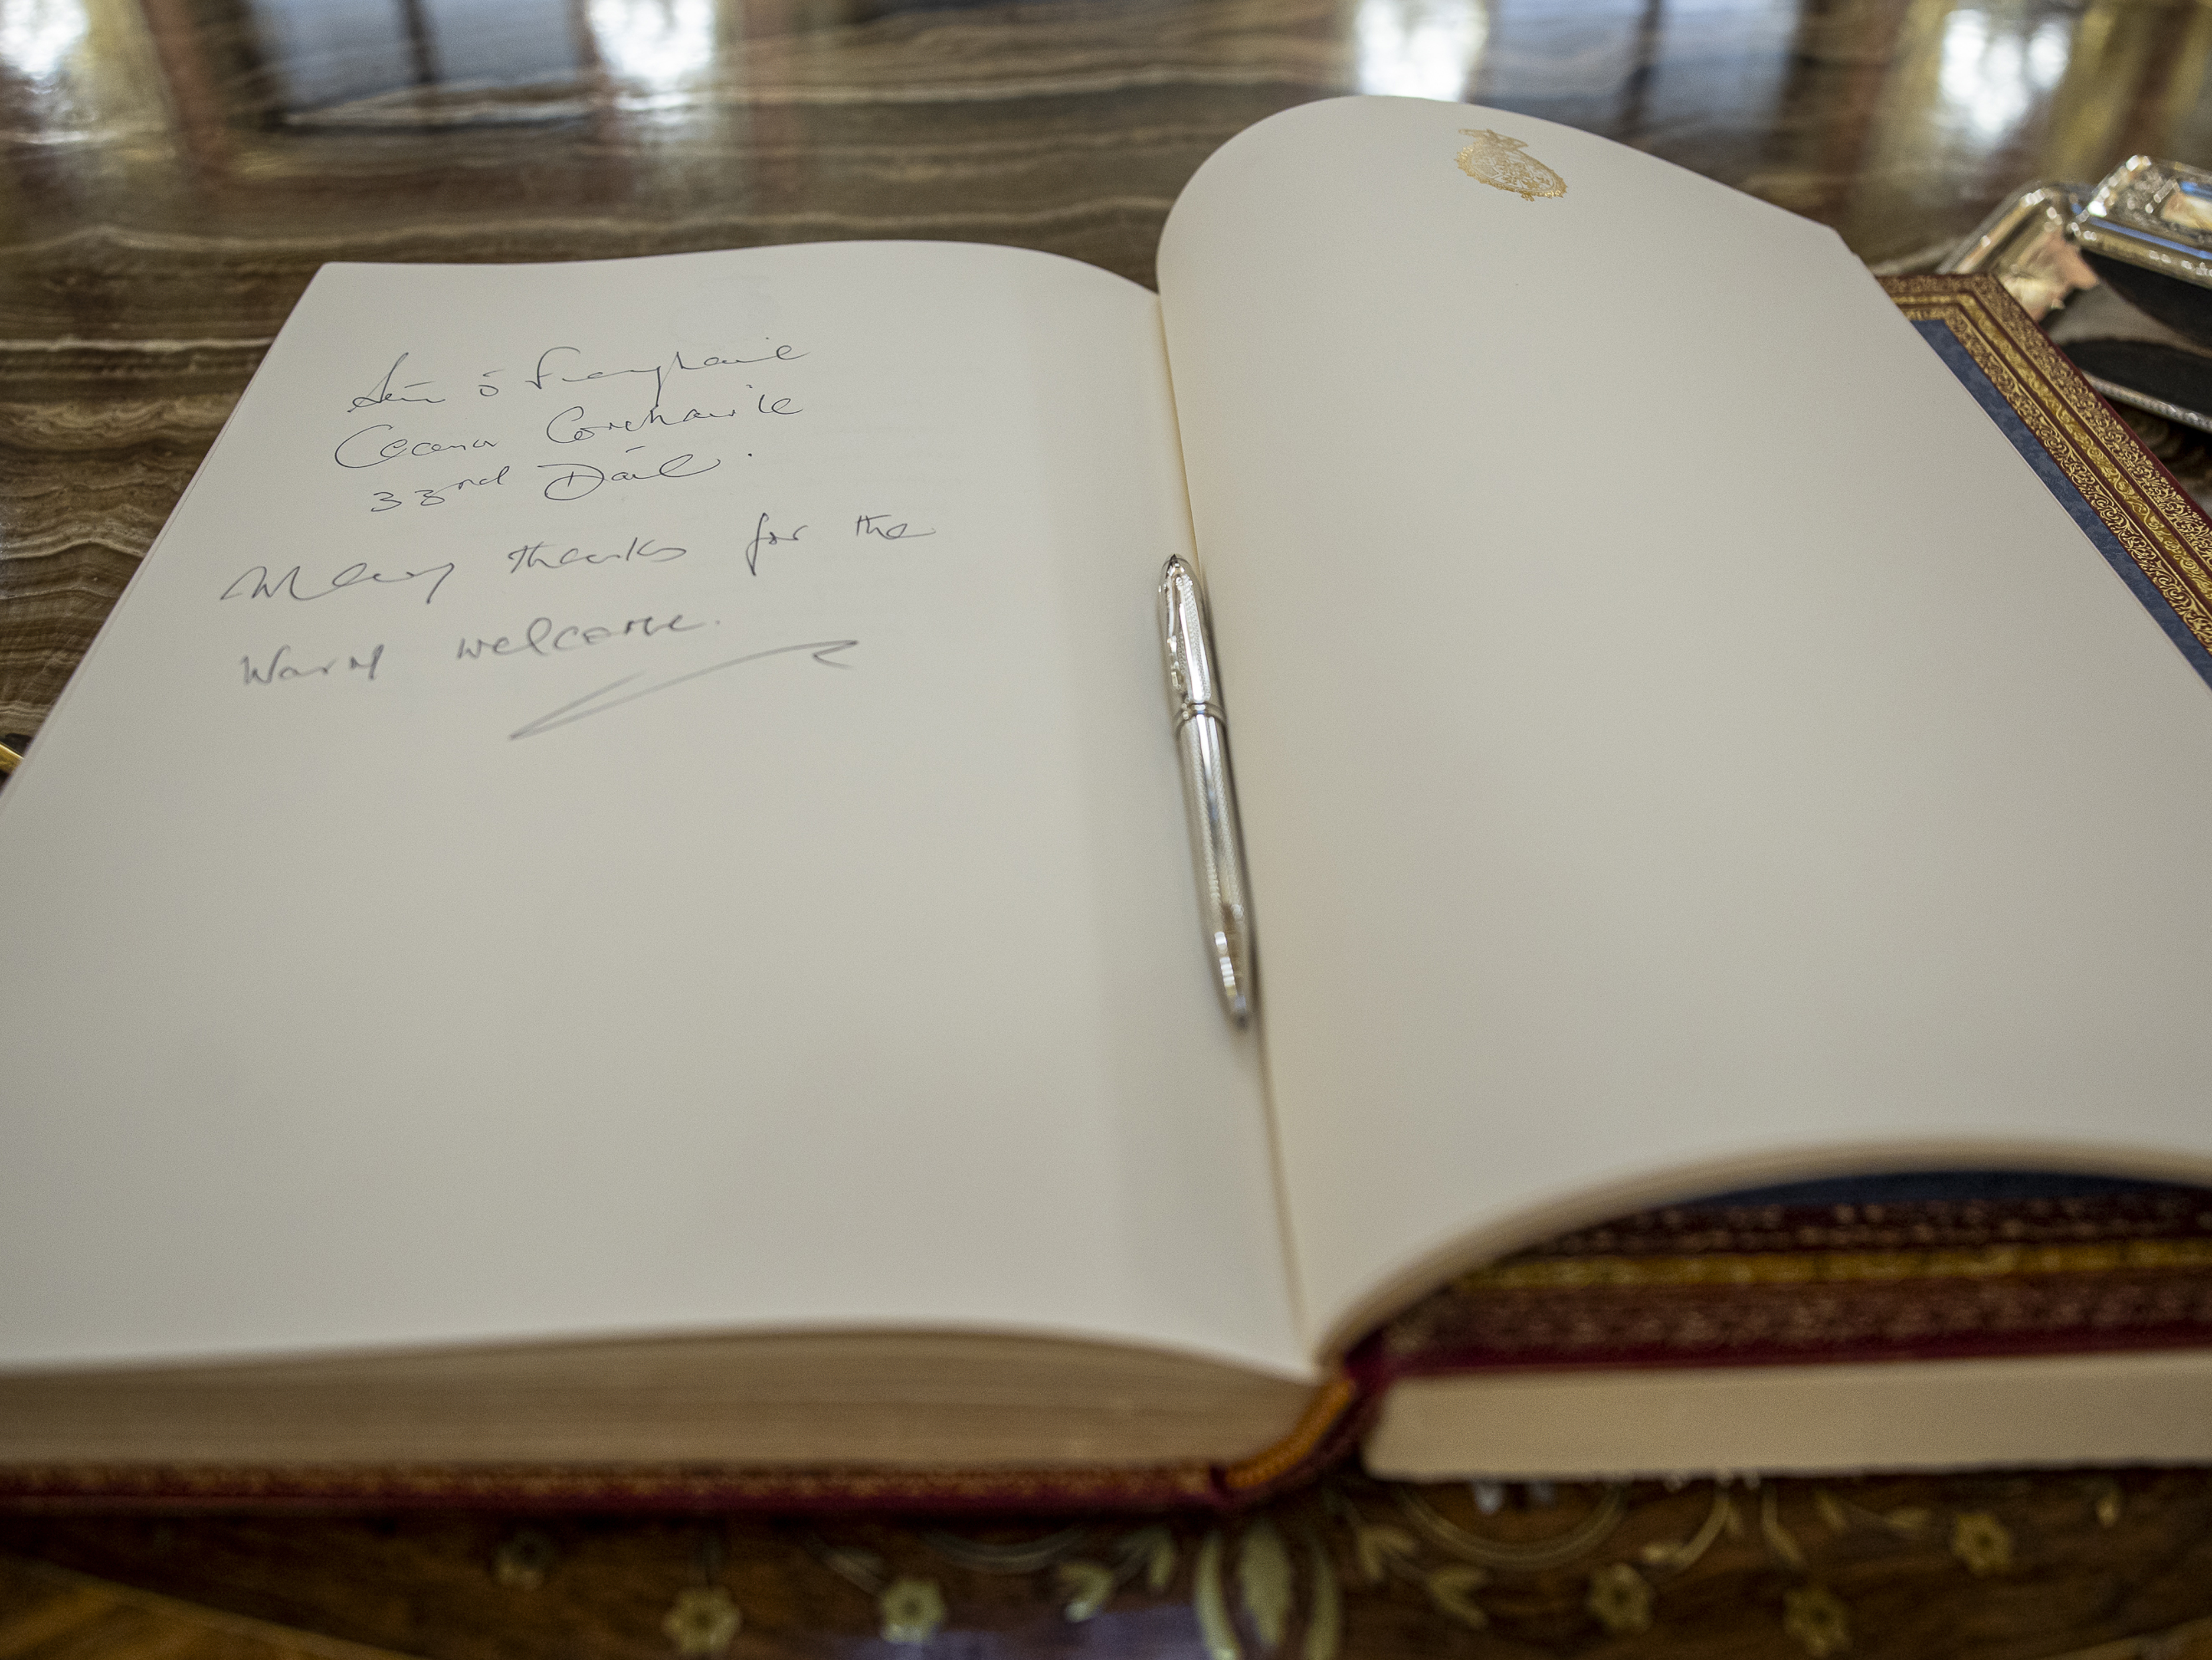 Seán Ó Fearghaíl
Ceann Comhairle
33rd Dáil.
Many thanks for the
warm welcome.